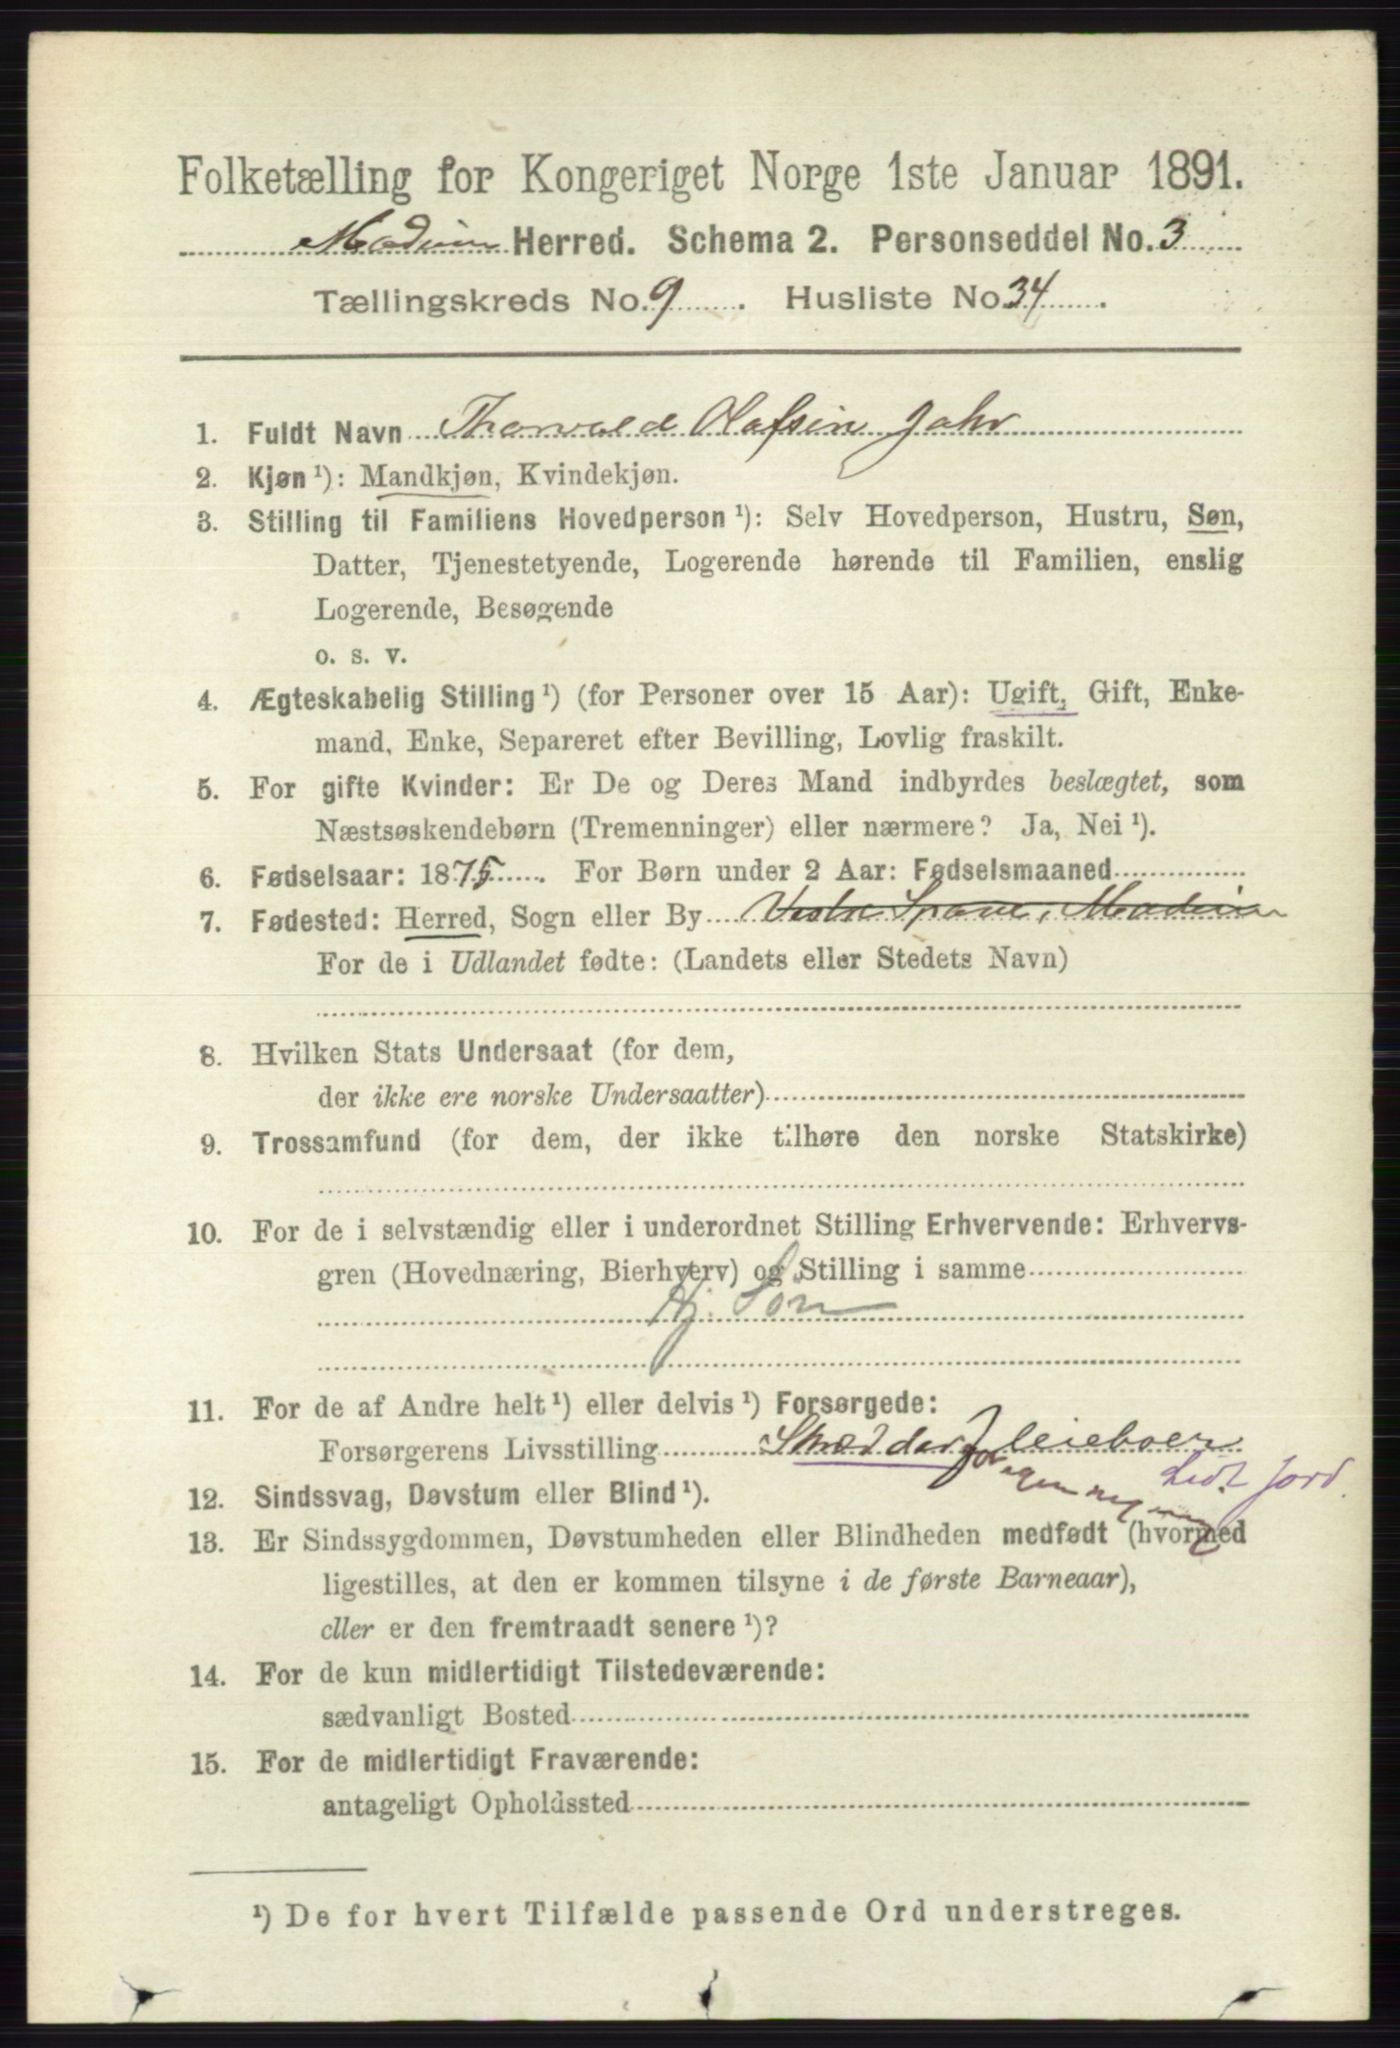 Folketælling for Kongeriget Norge 1ste Januar 1891.
Modum Herred. Schema 2. Personseddel No. 3
Tællingskreds No. 9. Husliste No 34.
1. Fuldt Navn Thorvald Olafsen Jahr
2. Kjøn ¹): Mandkjøn, Kvindekjøn.
3. Stilling til Familiens Hovedperson ¹): Selv Hovedperson, Hustru, Søn,
Datter, Tjenestetyende, Logerende hørende til Familien, enslig
Logerende, Besøgende
o. s. v.
4. Ægteskabelig Stilling ¹) (for Personer over 15 Aar): Ugift, Gift, Enke-
mand, Enke, Separeret efter Bevilling, Lovlig fraskilt.
5. For gifte Kvinder: Er De og Deres Mand indbyrdes beslægtet, som
Næstsøskendebørn (Tremenninger) eller nærmere? Ja, Nei ¹).
6. Fødselsaar: 1875. For Børn under 2 Aar: Fødselsmaaned
7. Fødested: Herred, Sogn eller By Vestre Spone, Modum
For de i Udlandet fødte: (Landets eller Stedets Navn)
8. Hvilken Stats Undersaat (for dem,
der ikke ere norske Undersaatter)
9. Trossamfund (for dem, der ikke tilhøre den norske Statskirke)
10. For de i selvstændig eller i underordnet Stilling Erhvervende: Erhvervs-
gren (Hovednæring, Bierhverv) og Stilling i samme
Hj. Søn
11. For de af Andre helt ¹) eller delvis ¹) Forsørgede:
Forsørgerens Livsstilling Skrædder leieboer
for egen regning Lidt jord.
12. Sindssvag, Døvstum eller Blind ¹).
13. Er Sindssygdommen, Døvstumheden eller Blindheden medfødt (hvormed
ligestilles, at den er kommen tilsyne i de første Barneaar),
eller er den fremtraadt senere ¹)?
14. For de kun midlertidigt Tilstedeværende:
sædvanligt Bosted
15. For de midlertidigt Fraværende:
antageligt Opholdssted
¹) De for hvert Tilfælde passende Ord understreges.